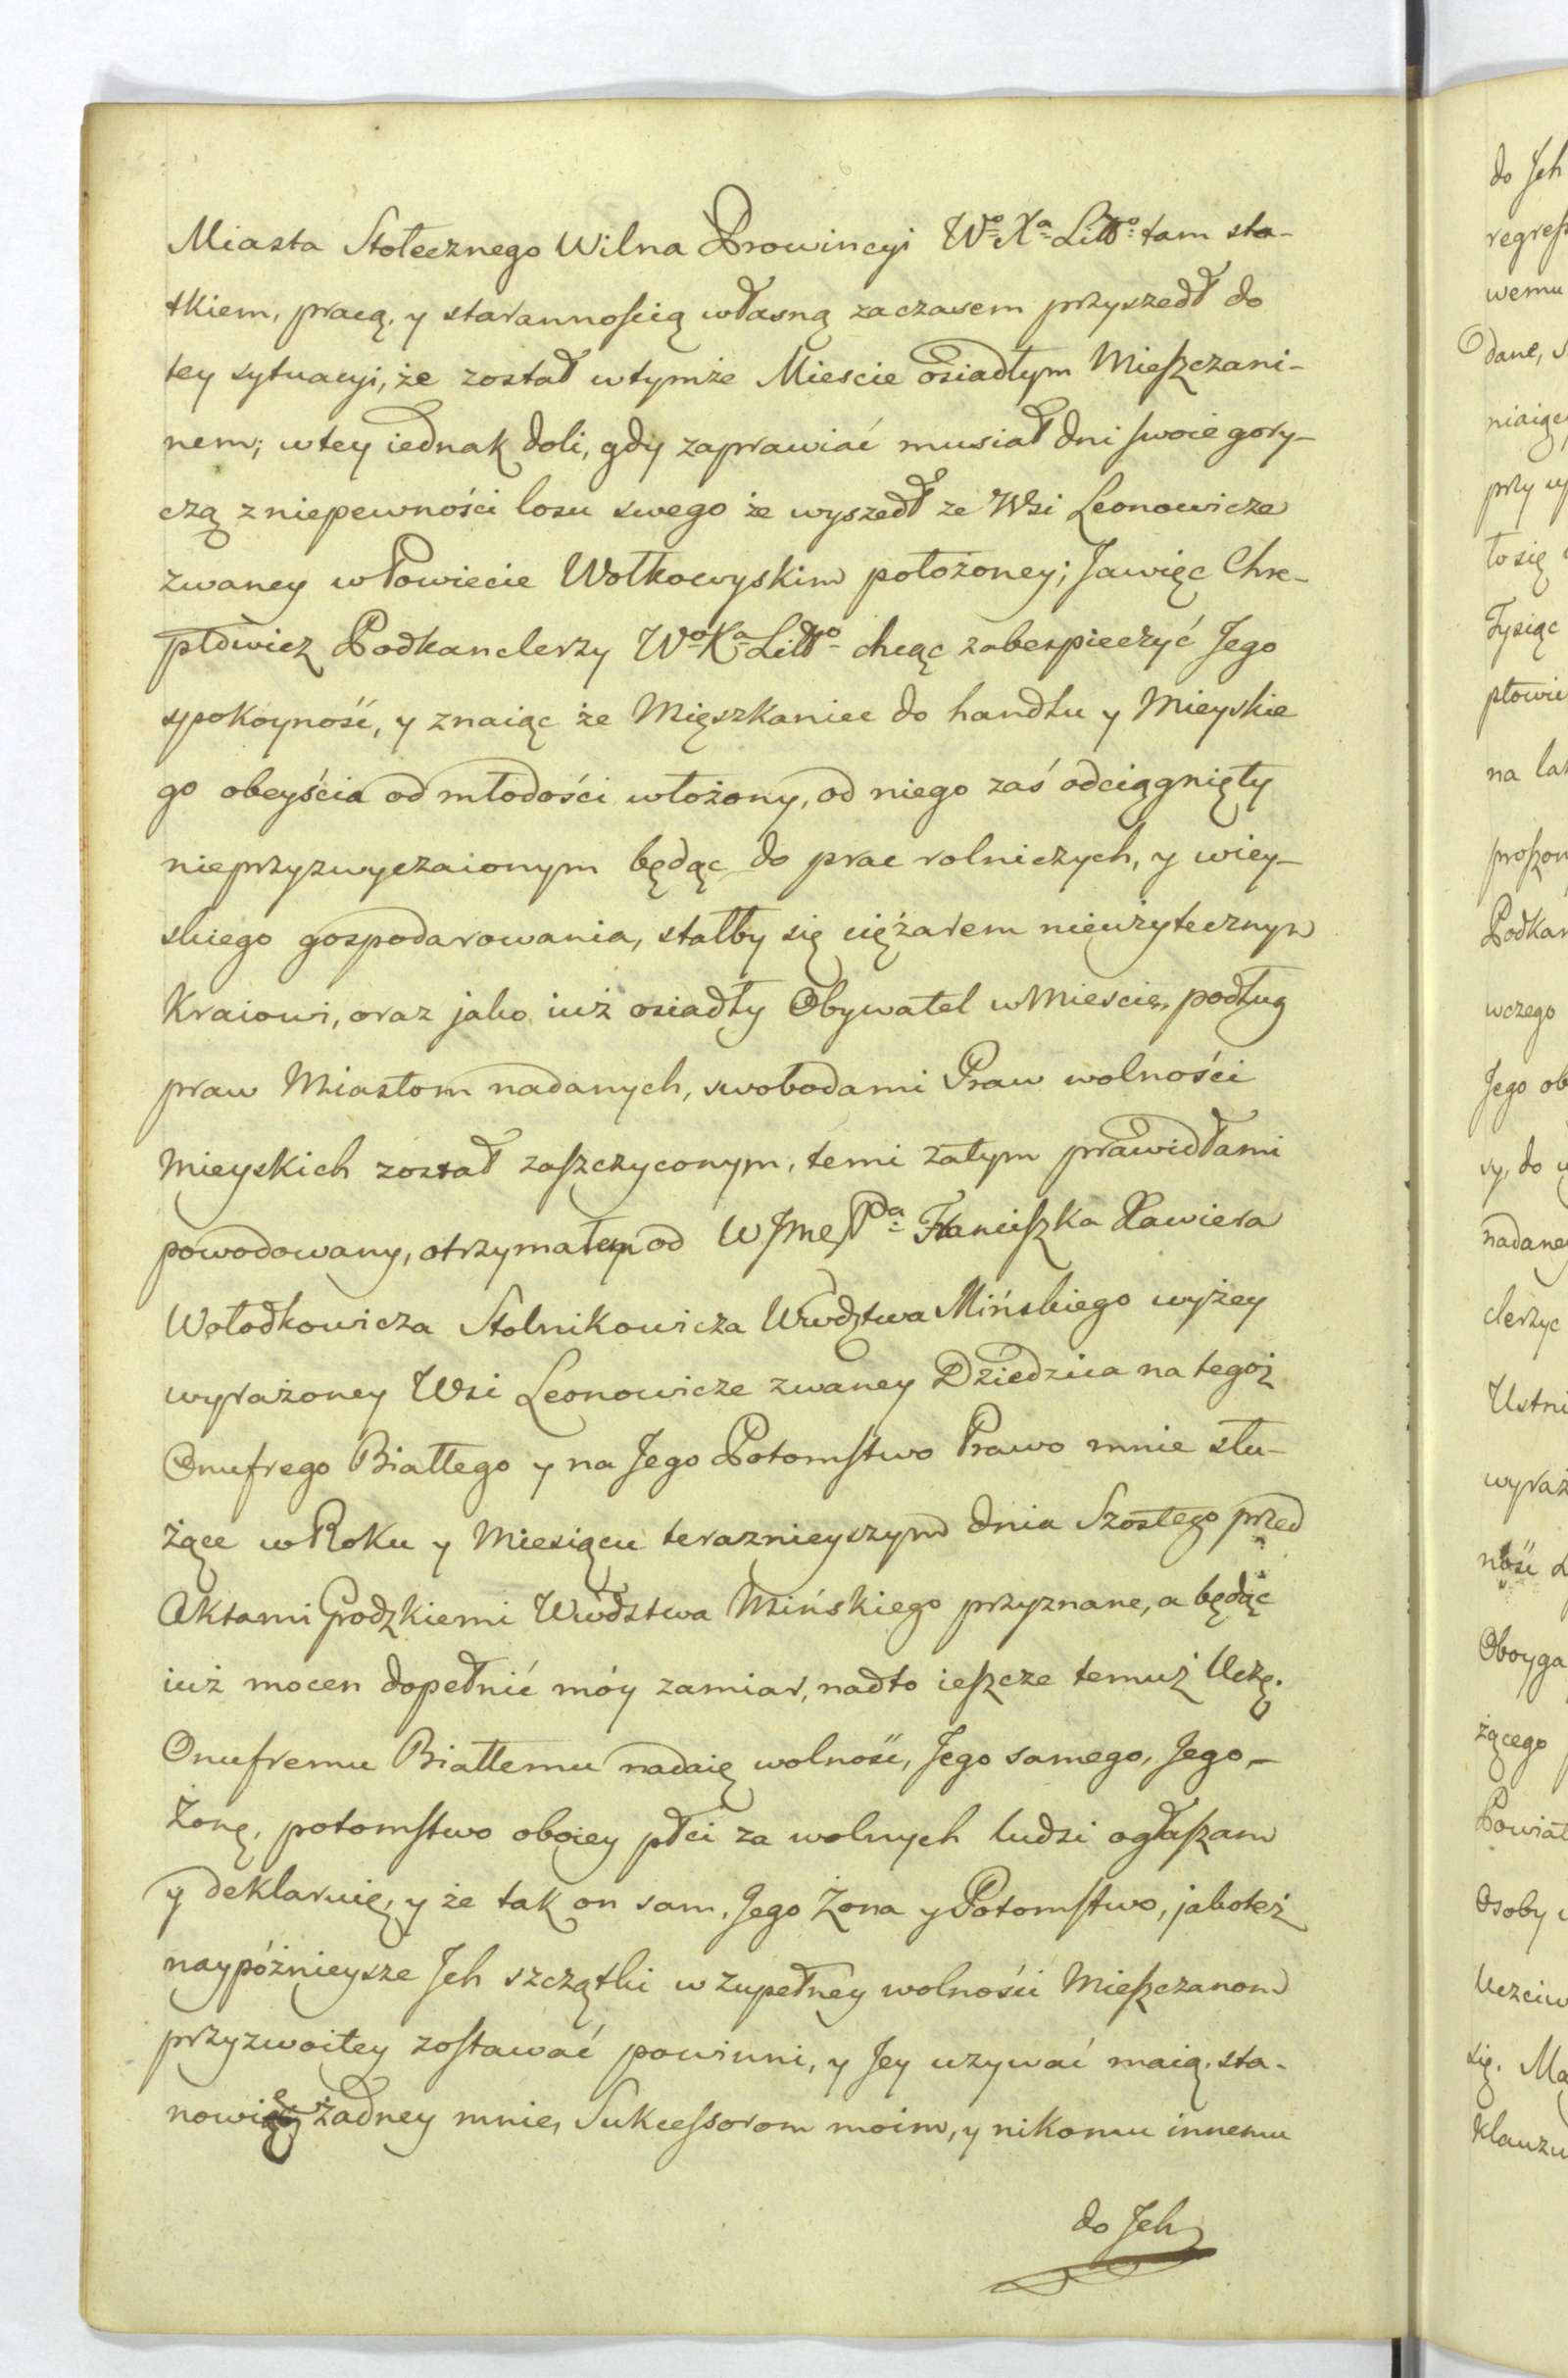 Miasta Stołecznego Wilna Prowincyi Wo Xa Litto tam sta-
tkiem, pracą, y starannością własną zaczasem przyszedł do
tey sytuacyi, że został wtymże Mieście osiadłym Mieszczani-
nem; wtey iednak doli, gdy zaprawiać musiał dni swoie gory-
czą z niepewności losu swego że wyszedł ze Wsi Leonowicze
zwaney w Powiecie Wołkowyskim położoney; Ja więc Chre-
ptowicz Podkanclerzy Wo Xa Litto chcąc zabespieczyć Jego
spokoyność, y znaiąc że Mięszkaniec do handlu y Mieyskie
go obeyścia od młodości włożony, od niego zaś odciągnięty
nieprzyzwyczaionym będąc do prac rolniczych, y wiey-
skiego gospodarowania, stałby się ciężarem nieużytecznym
Kraiowi, oraz jako iuż osiadły Obywatel w Mieście, podług
praw Miastom nadanych, swobodami Praw wolności
Mieyskich został zaszczyconym, temi zatym prawidłami
powodowany, otrzymałem od W Jme Pa Franciszka Xawiera
Wołodkowicza Stolnikowicza Wwdztwa Mińskiego wyżey
wyrażoney Wsi Leonowicze zwaney Dziedzica na tegoż
Onufrego Białłego y na Jego Potomstwo Prawo mnie słu-
żące w Roku y Miesiącu teraznieyszym dnia Szóstego przed
Aktami Grodzkiemi Wwdztwa Mińskiego przyznane, a będąc
iuż mocen dopełnić móy zamiar, nadto ieszcze temuż Uczę.
Onufremu Białłemu nadaię wolność, Jego samego, Jego
Żonę, potomstwo oboiey płci za wolnych ludzi ogłaszam
y deklaruię, y że tak on sam, Jego Żona y Potomstwo, jakoteż
naypóżnieysze Jch szczątki w zupełney wolności Mieszczanom
przyzwoitey zostawać powinni, y Jey uzywać maią. sta-
nowię żadney mnie, Sukcessorom moim, y nikomu innemu
do Jch
do Jch
wemu
dane,
przy
to się
Tysiąc
na
wczego
Jego
sy, do
Osoby
się.